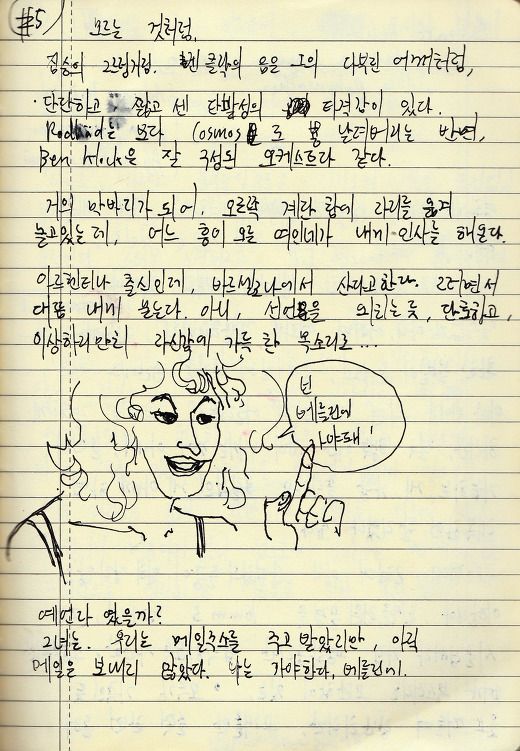 #5
모르는 것처럼.
짐승의 그림처럼. 벤 클락의 음은 그의 다부진 어깨처럼,
단단하고 짧고 센 단발성의 타격감이 있다.
보다 Cosmos로 날려버리는 반면,
Ben Klock은 잘 구성된 오케스트라 같다.
거의 막바지가 되어, 오른쪽 계단 랍에 자리를 옮겨
놀고있는데, 어느 흥이 오른 여인네가 내게 인사를 해온다.
아르헨티나 출신인데, 바르셀로나에서 산다고 한다. 그러면서
대뜸 내게 묻는다. 아니, 선언을 의하는 듯, 단호하고,
이상하리만치 자신감에 가득 찬 목소리로...
넌
베를린에
가야돼!
예언자 였을까?
그녀는. 우리는 메일주소를 주고 받았지만, 아직
메일은 보내지 않았다. 나는 가야한다, 베를린에.